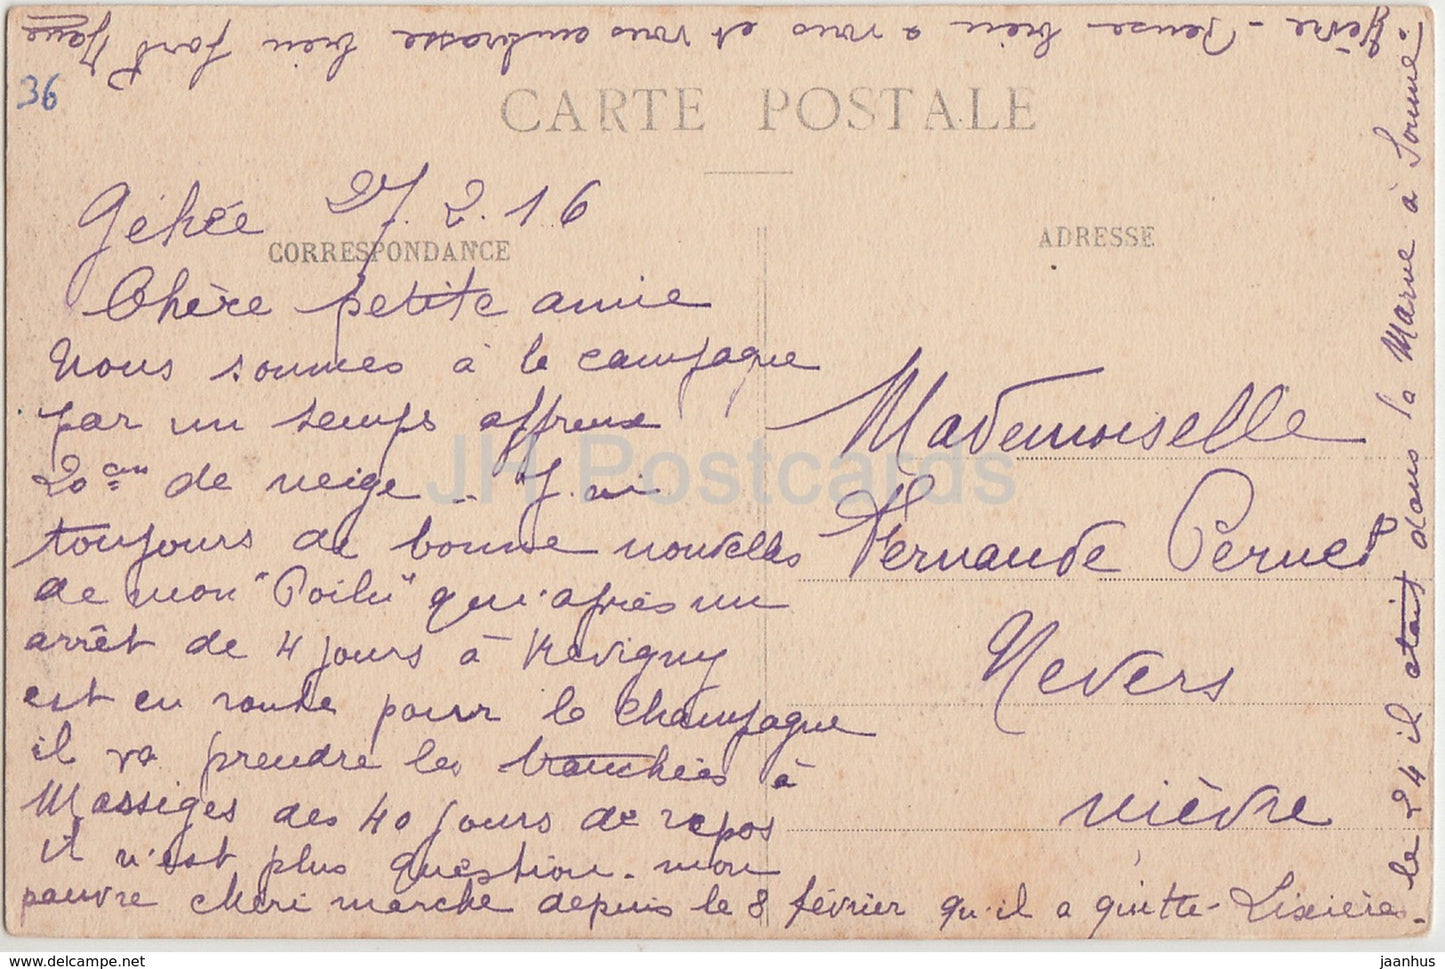 36
CARTE POSTALE
CORRESPONDANCE
ADRESSE
Gehée 27.2.16
Chère petite amie
Nous sommes à la campagne
par un temps affreux
20 cm de neige - J'ai
toujours de bonne nouvelles
de mon "Poilu" qui après un
arrêt de 4 jours à Revigny
est en route pour la Champagne
il va prendre les tranchées à
Massiges des 40 jours de repos
il n'est plus question. mon
pauvre cheri marche depuis le 8 février qu'il a quitté Lixières.
le 24 il etait dans la Marne à Somme-
Yèvre - Pense bien a vous et vous embrasse bien fort
Mademoiselle
Fernande Pernet
Nevers
nièvre
JH Postcards
jaanhus
http://www.delcampe.net